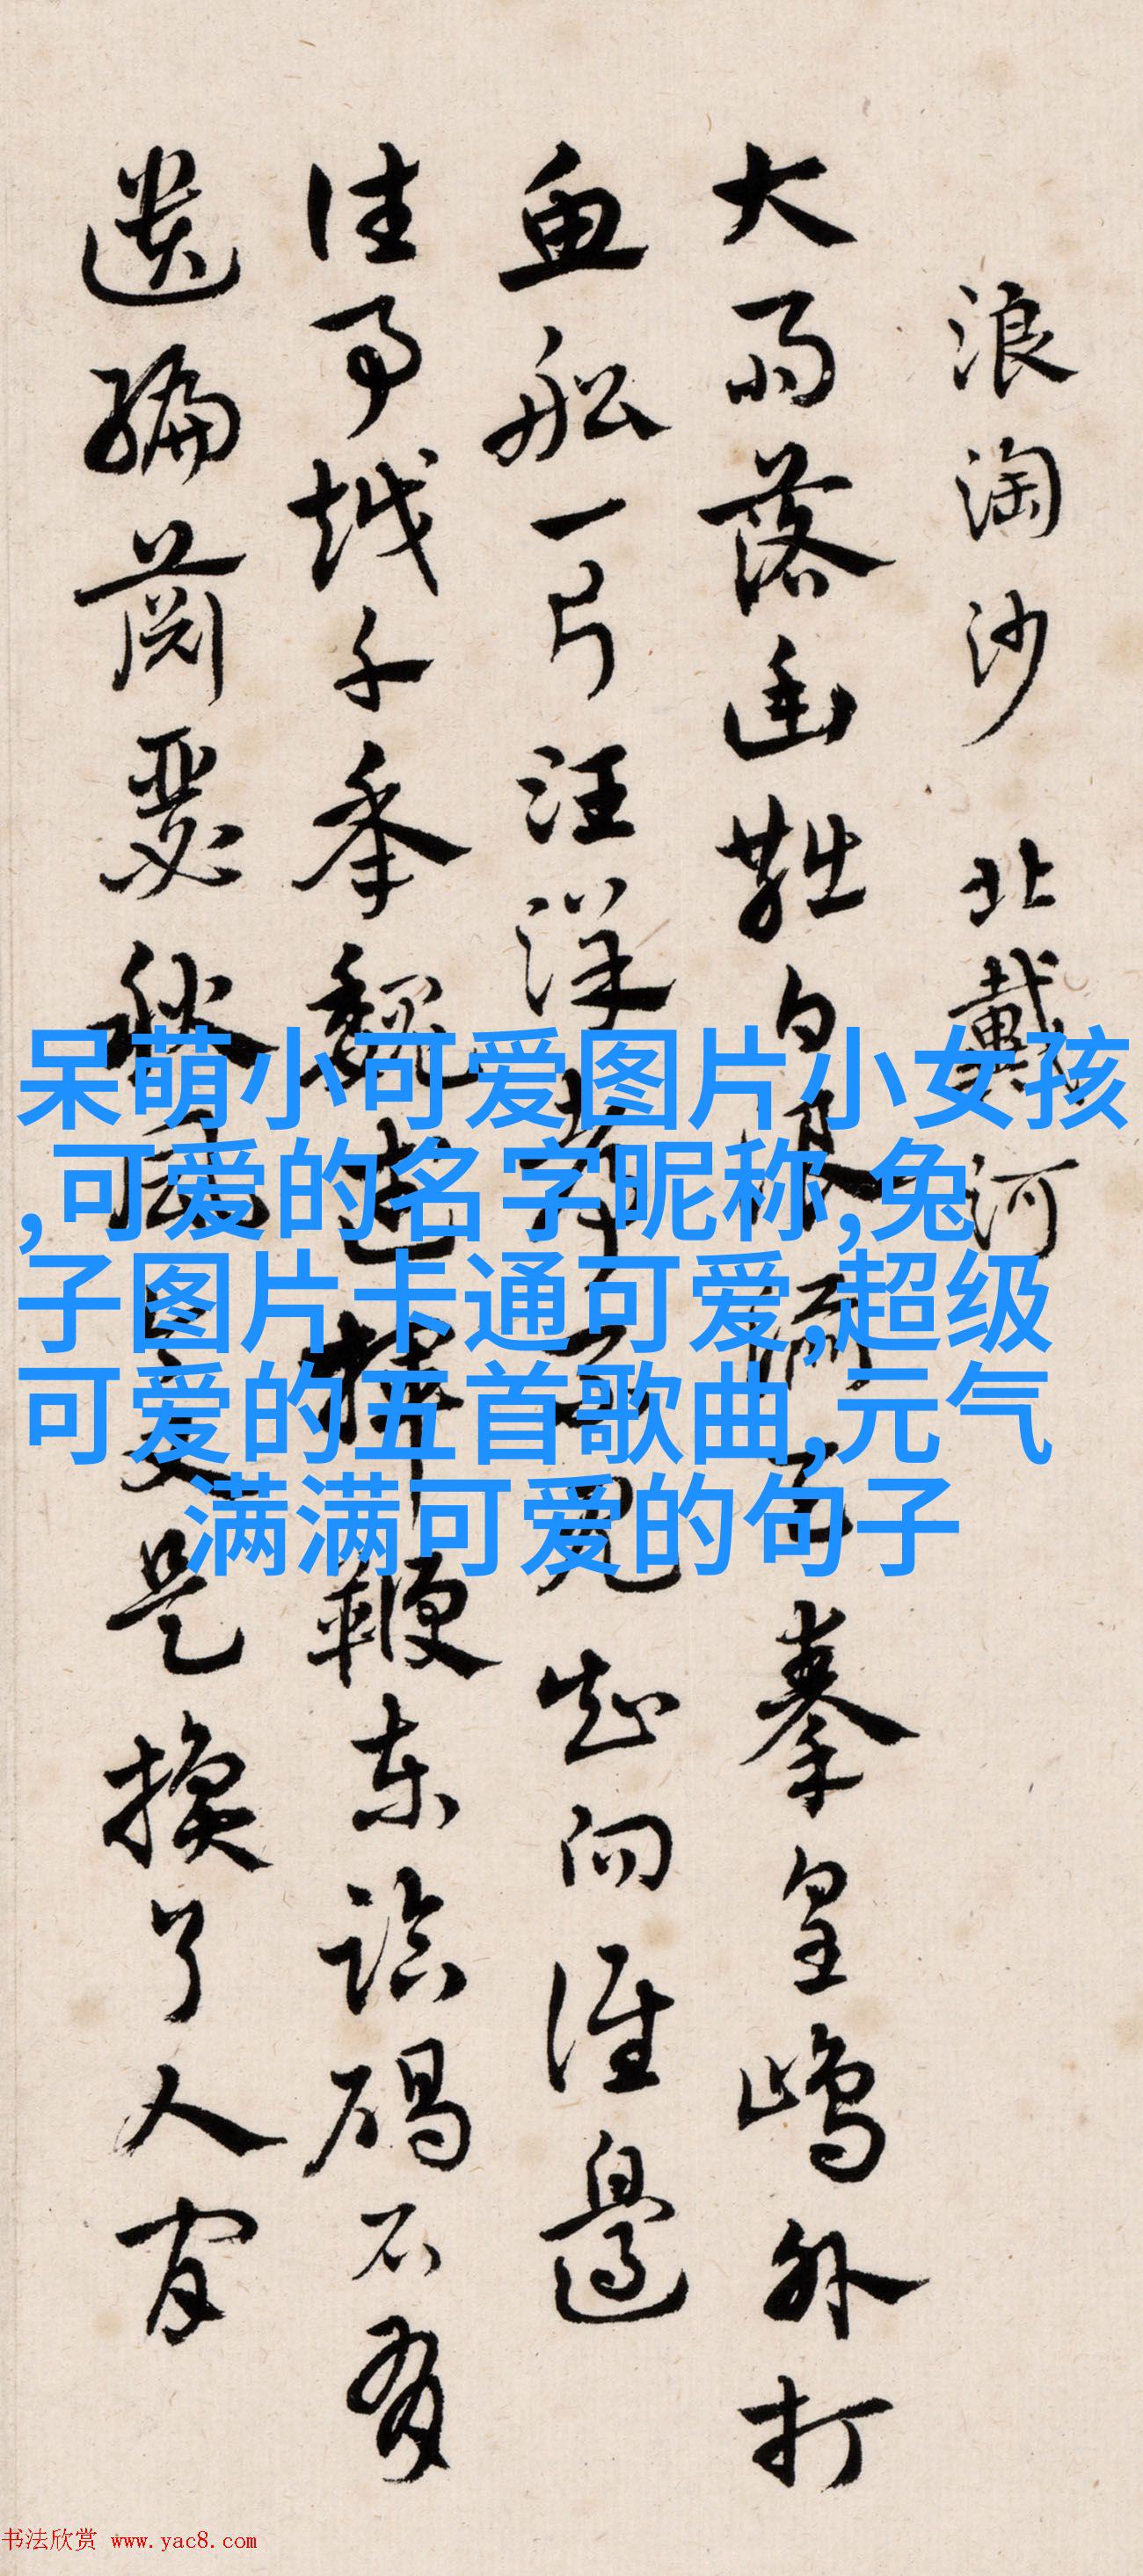 浪淘沙 北戴河
大雨落幽燕白浪滔天秦皇嶋外打
魚船一片汪洋都不見知向誰邊
往事越千年魏武揮鞭東臨碣石有
遺編蕭瑟秋風今又是換了人間
呆萌小可爱图片小女孩
,可爱的名字昵称,兔
子图片卡通可爱,超级
可爱的五首歌曲,元气
满满可爱的句子
书法欣赏 www.yac8.com